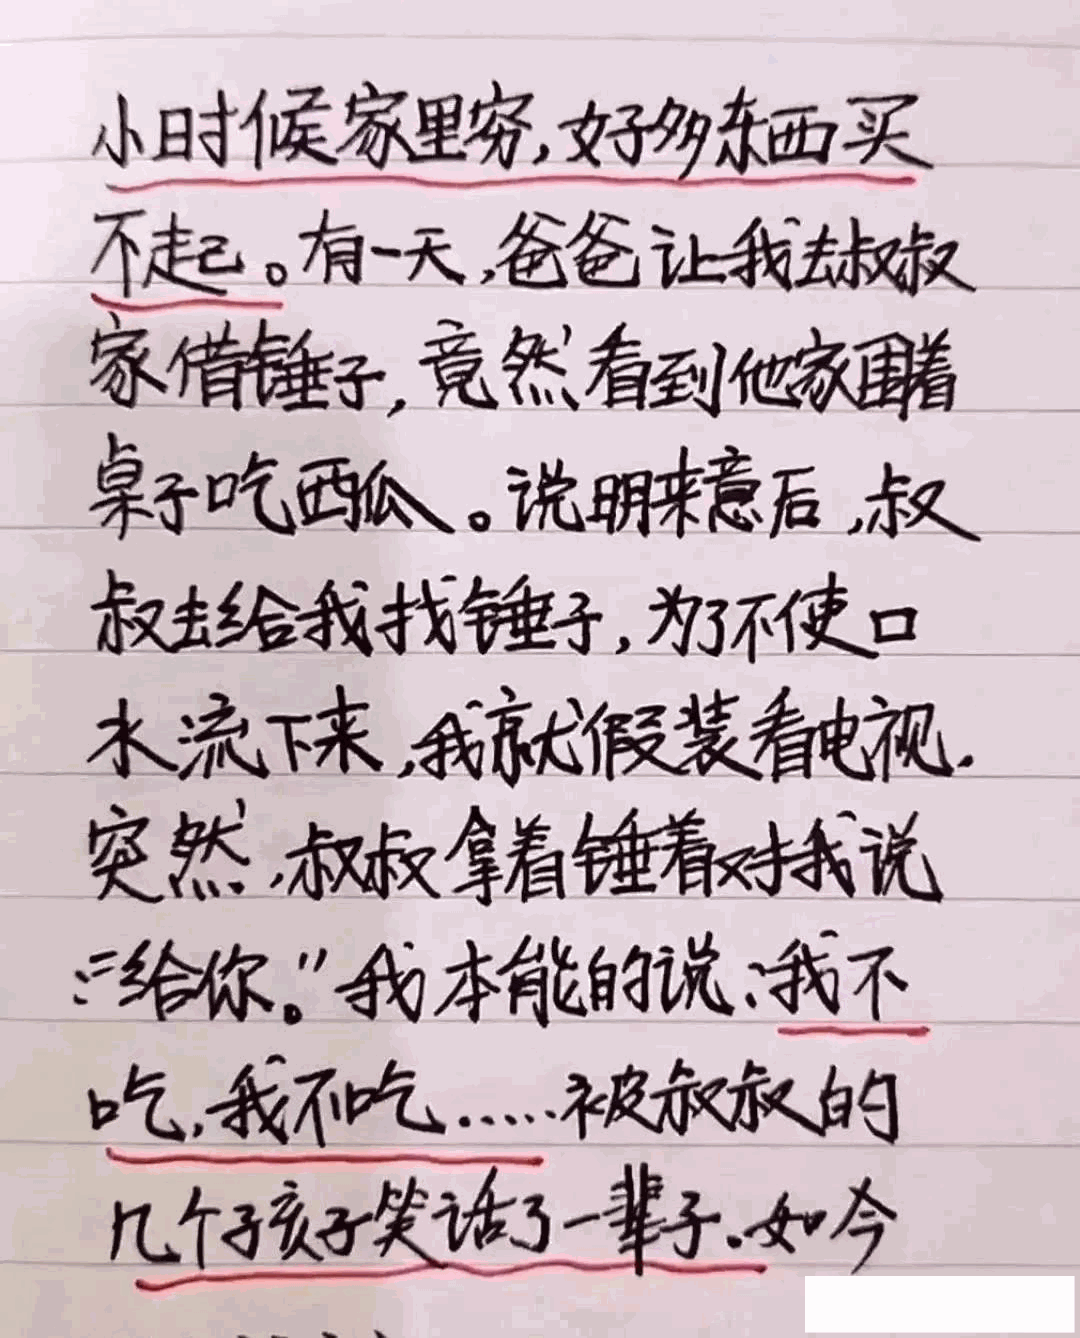 小时候家里穷,好多东西买
不起。有一天,爸爸让我去叔叔
家借锤子,竟然看到他家围着
桌子吃西瓜。说明来意后,叔
叔去给我找锤子,为了不使口
水流下来,我就假装看电视.
突然,叔叔拿着锤着对我说
:“给你。”我本能的说:我不
吃,我不吃.....被叔叔的
几个孩子笑话了一辈子.如今